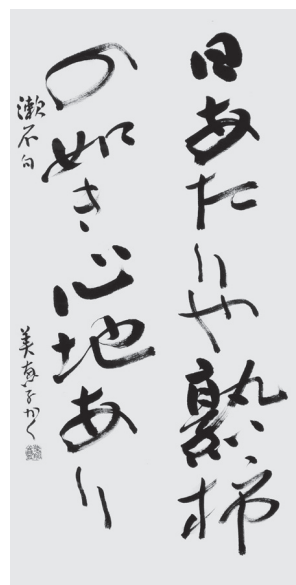 日あたりや熟柿
の如き心地あり
漱石句
美奈子かく